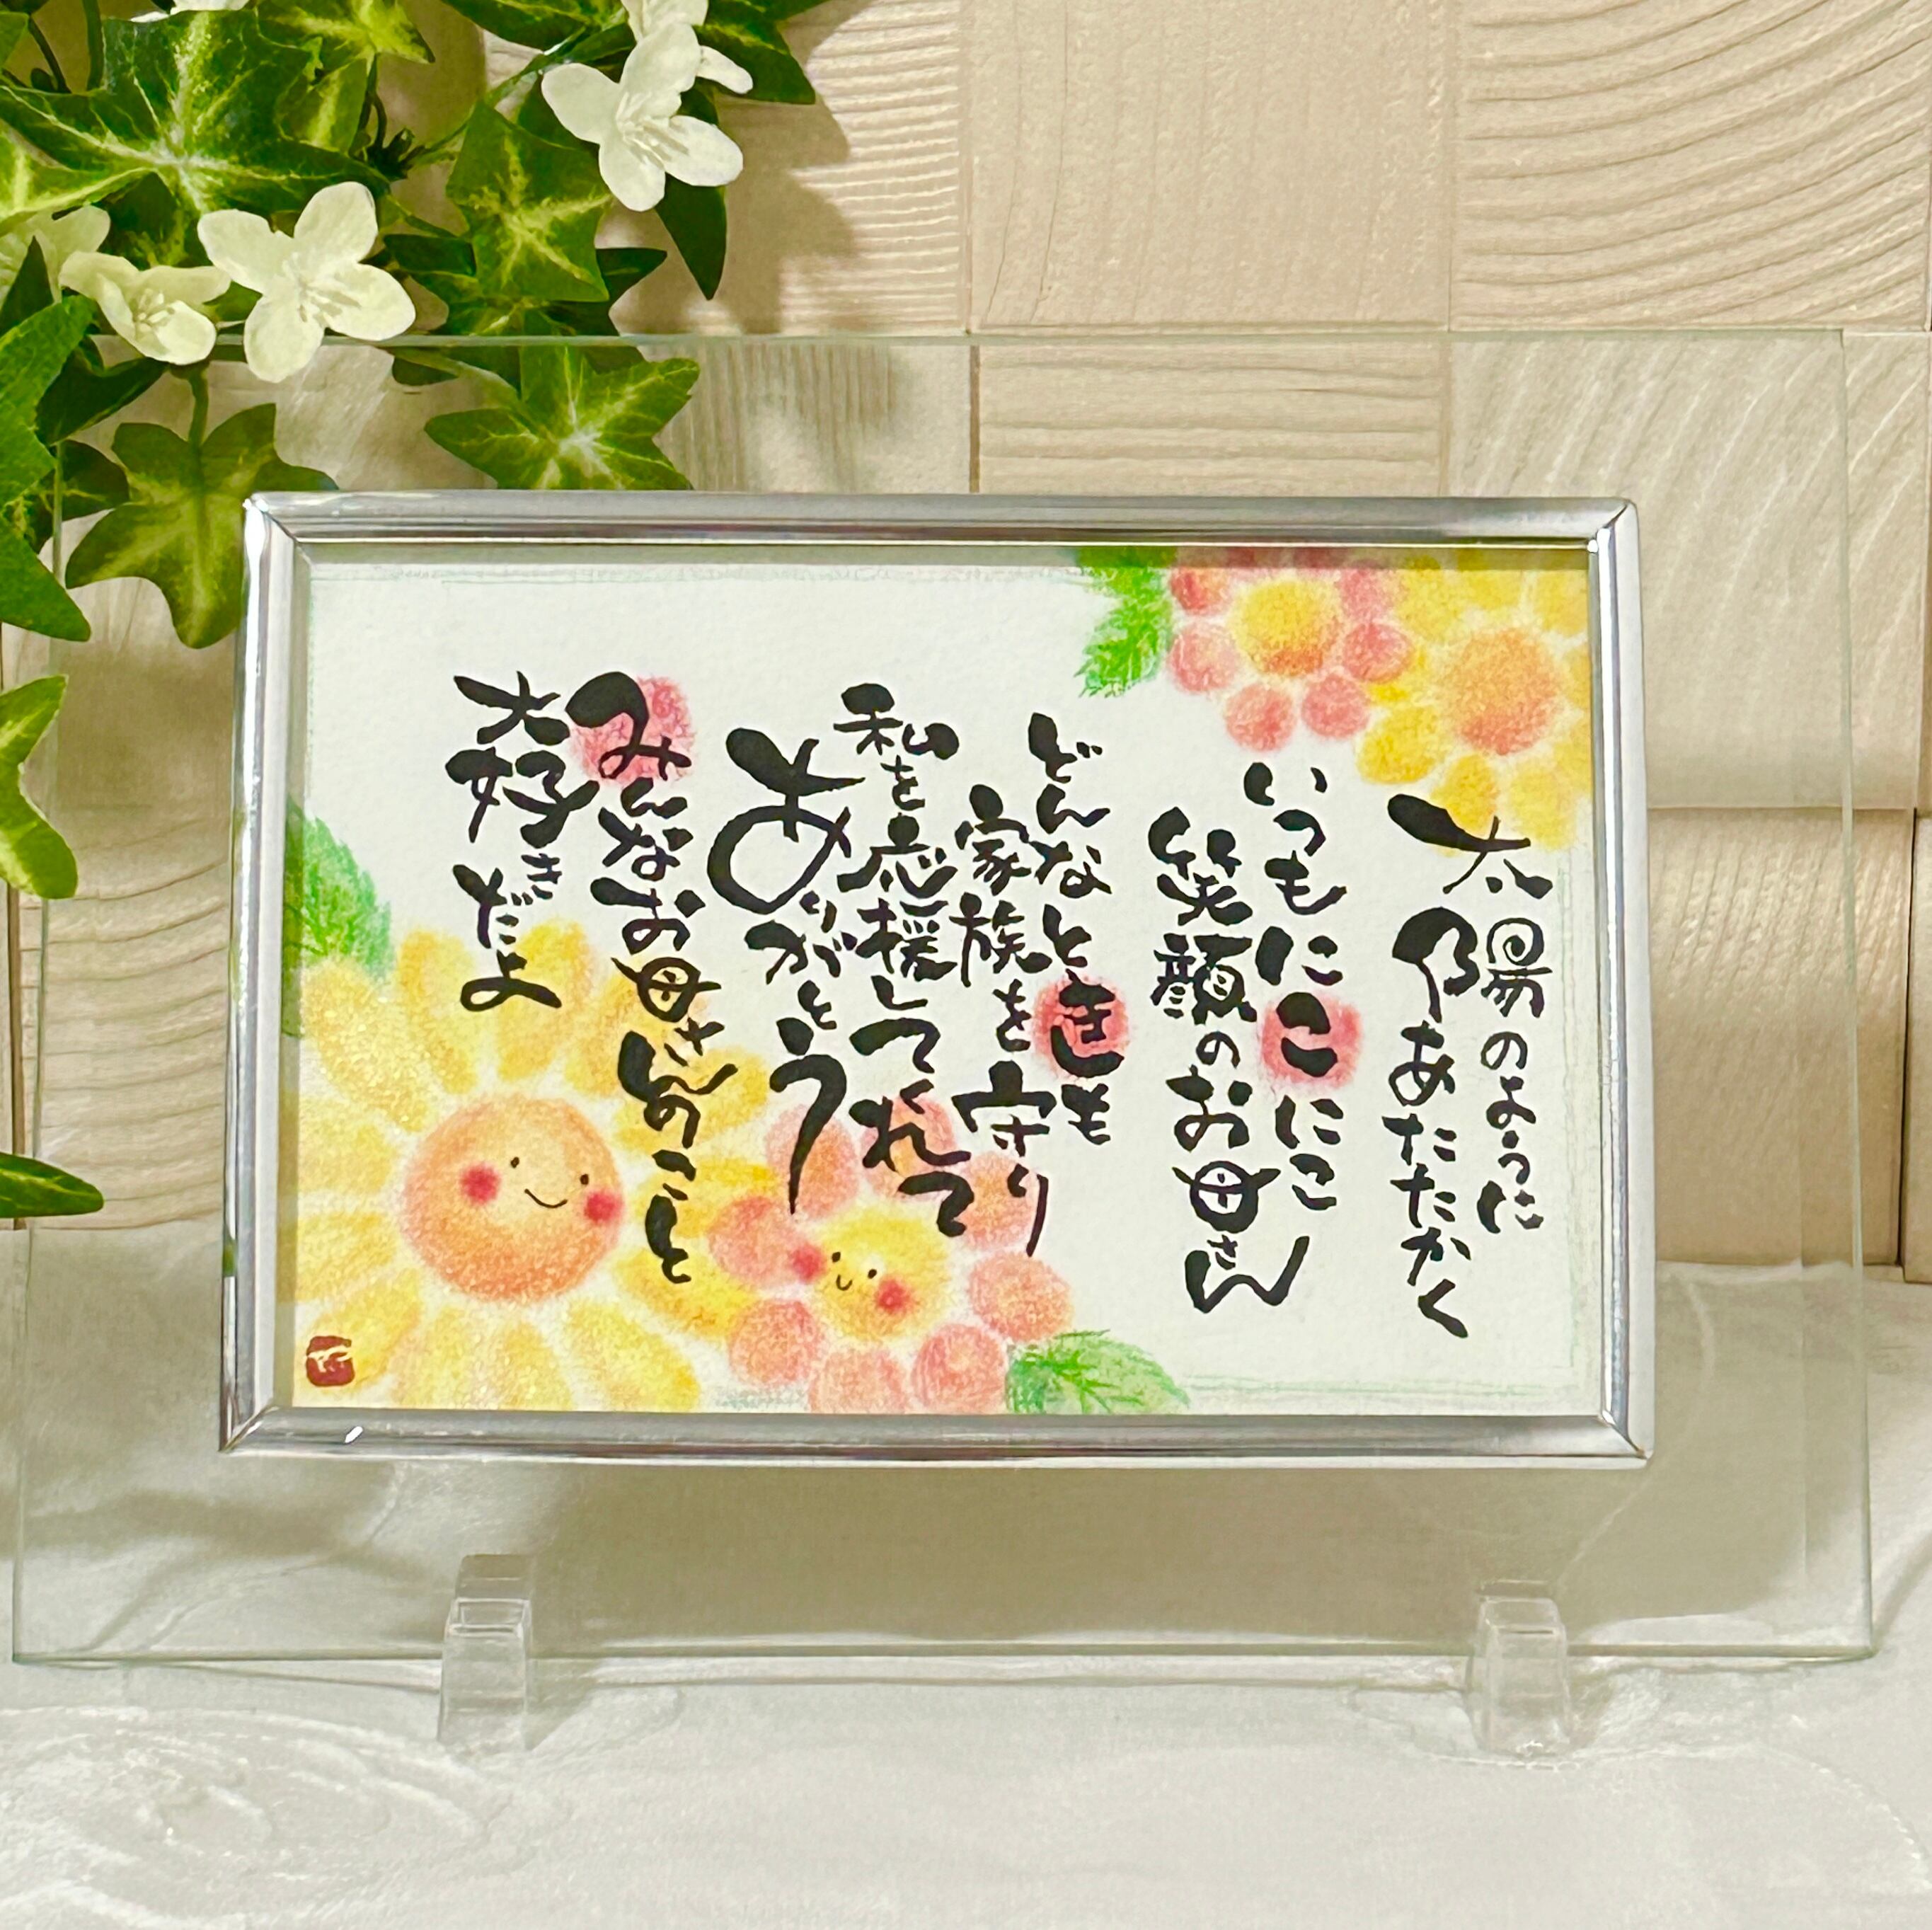 太陽のように
あたたかく
いつもにこにこ
笑顔のお母さん
どんなときも
家族を守り
私を応援してくれて
ありがとう
みんなお母さんのこと
大好きだよ